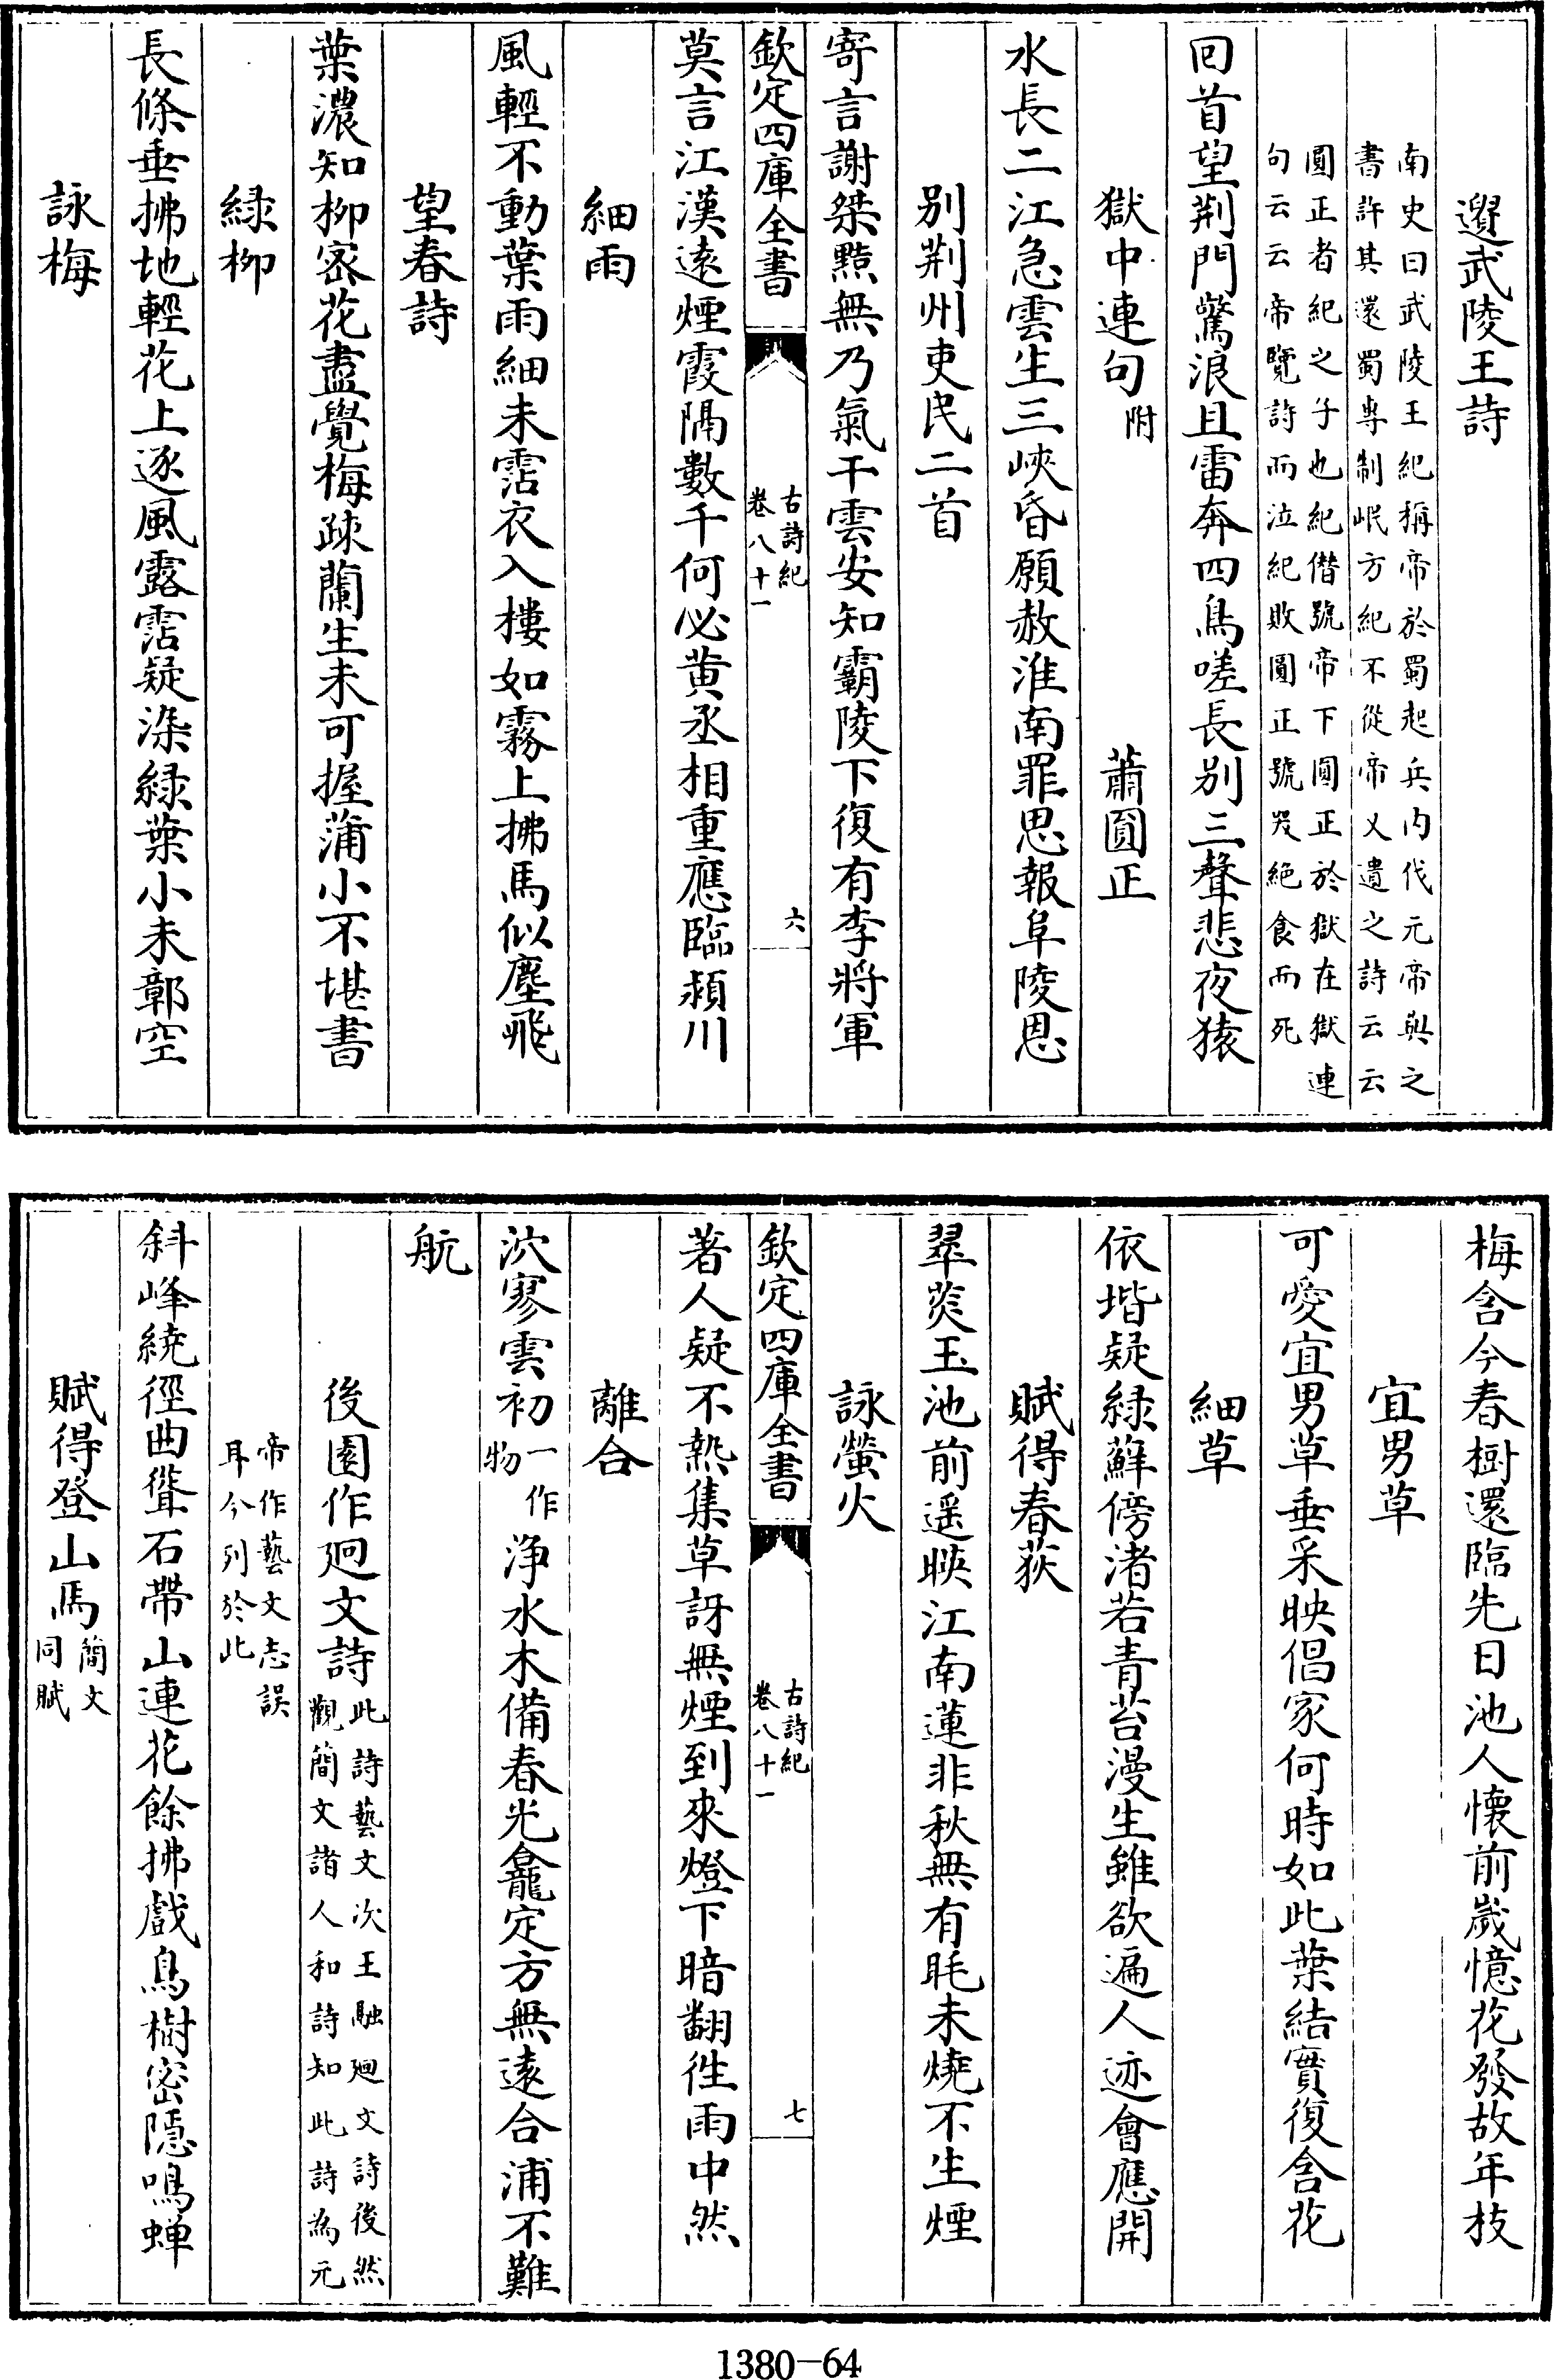 遺武陵王詩
南史曰武陵王紀稱帝於蜀起兵内伐元帝與之
書許其還蜀專制岷方紀不從帝又遺之詩云云
圓正者紀之子也紀僣號帝下圓正於獄在獄連
句云云帝覽詩而泣紀敗圓正號哭絶食而死
回首望荆門驚浪且雷奔四鳥嗟長别三聲悲夜猿
獄中連句附 蕭圓正
水長二江急雲生三峽昏願赦淮南罪思報阜陵恩
别荆州吏民二首
寄言謝桀黠無乃氣干雲安知霸陵下復有李將軍
欽定四庫全書 古詩紀 卷八十一 六
莫言江漢遠煙霞隔數千何必黄丞相重應臨潁川
細雨
風輕不動葉雨細未霑衣入樓如霧上拂馬似塵飛
望春詩
葉濃知柳宻花盡覺梅疎蘭生未可握蒲小不堪書
緑柳
長條垂拂地輕花上逐風露霑疑染緑葉小未鄣空
詠梅
梅含今春樹還臨先日池人懐前歳憶花發故年枝
宜男草
可愛宜男草垂采映倡家何時如此葉結實復含花
細草
依堦疑緑蘚傍渚若青苔漫生雖欲遍人迹會應開
賦得春荻
翠葵玉池前遥映江南蓮非秋無有毦未燒不生煙
詠螢火
欽定四庫全書 古詩紀 卷八十一 七
著人疑不熱集草訝無煙到來燈下暗翻徃雨中然
離合
沇寥雲初一作物浄水木備春光龕定方無遠合浦不難
航
後園作廻文詩此詩藝文次王融廻文詩後然
觀簡文諸人和詩知此詩為元
帝作藝文志誤
耳今列於此
斜峰繞徑曲聳石帶山連花餘拂戲鳥樹密隱鳴蟬
賦得登山馬簡文同賦
1380-64